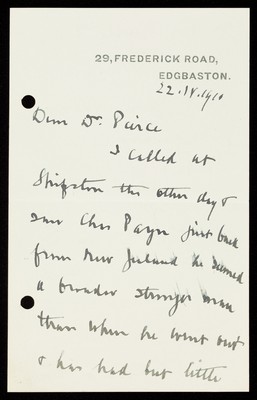 29, FREDERICK ROAD,
EDGBASTON.
22.IV.1910
Dear Dr. Peirce
I called at
Shipston the other day &
saw Chas Payne just back
from New Zealand he seemed
a broader stronger man
than when he went out
& has had but little